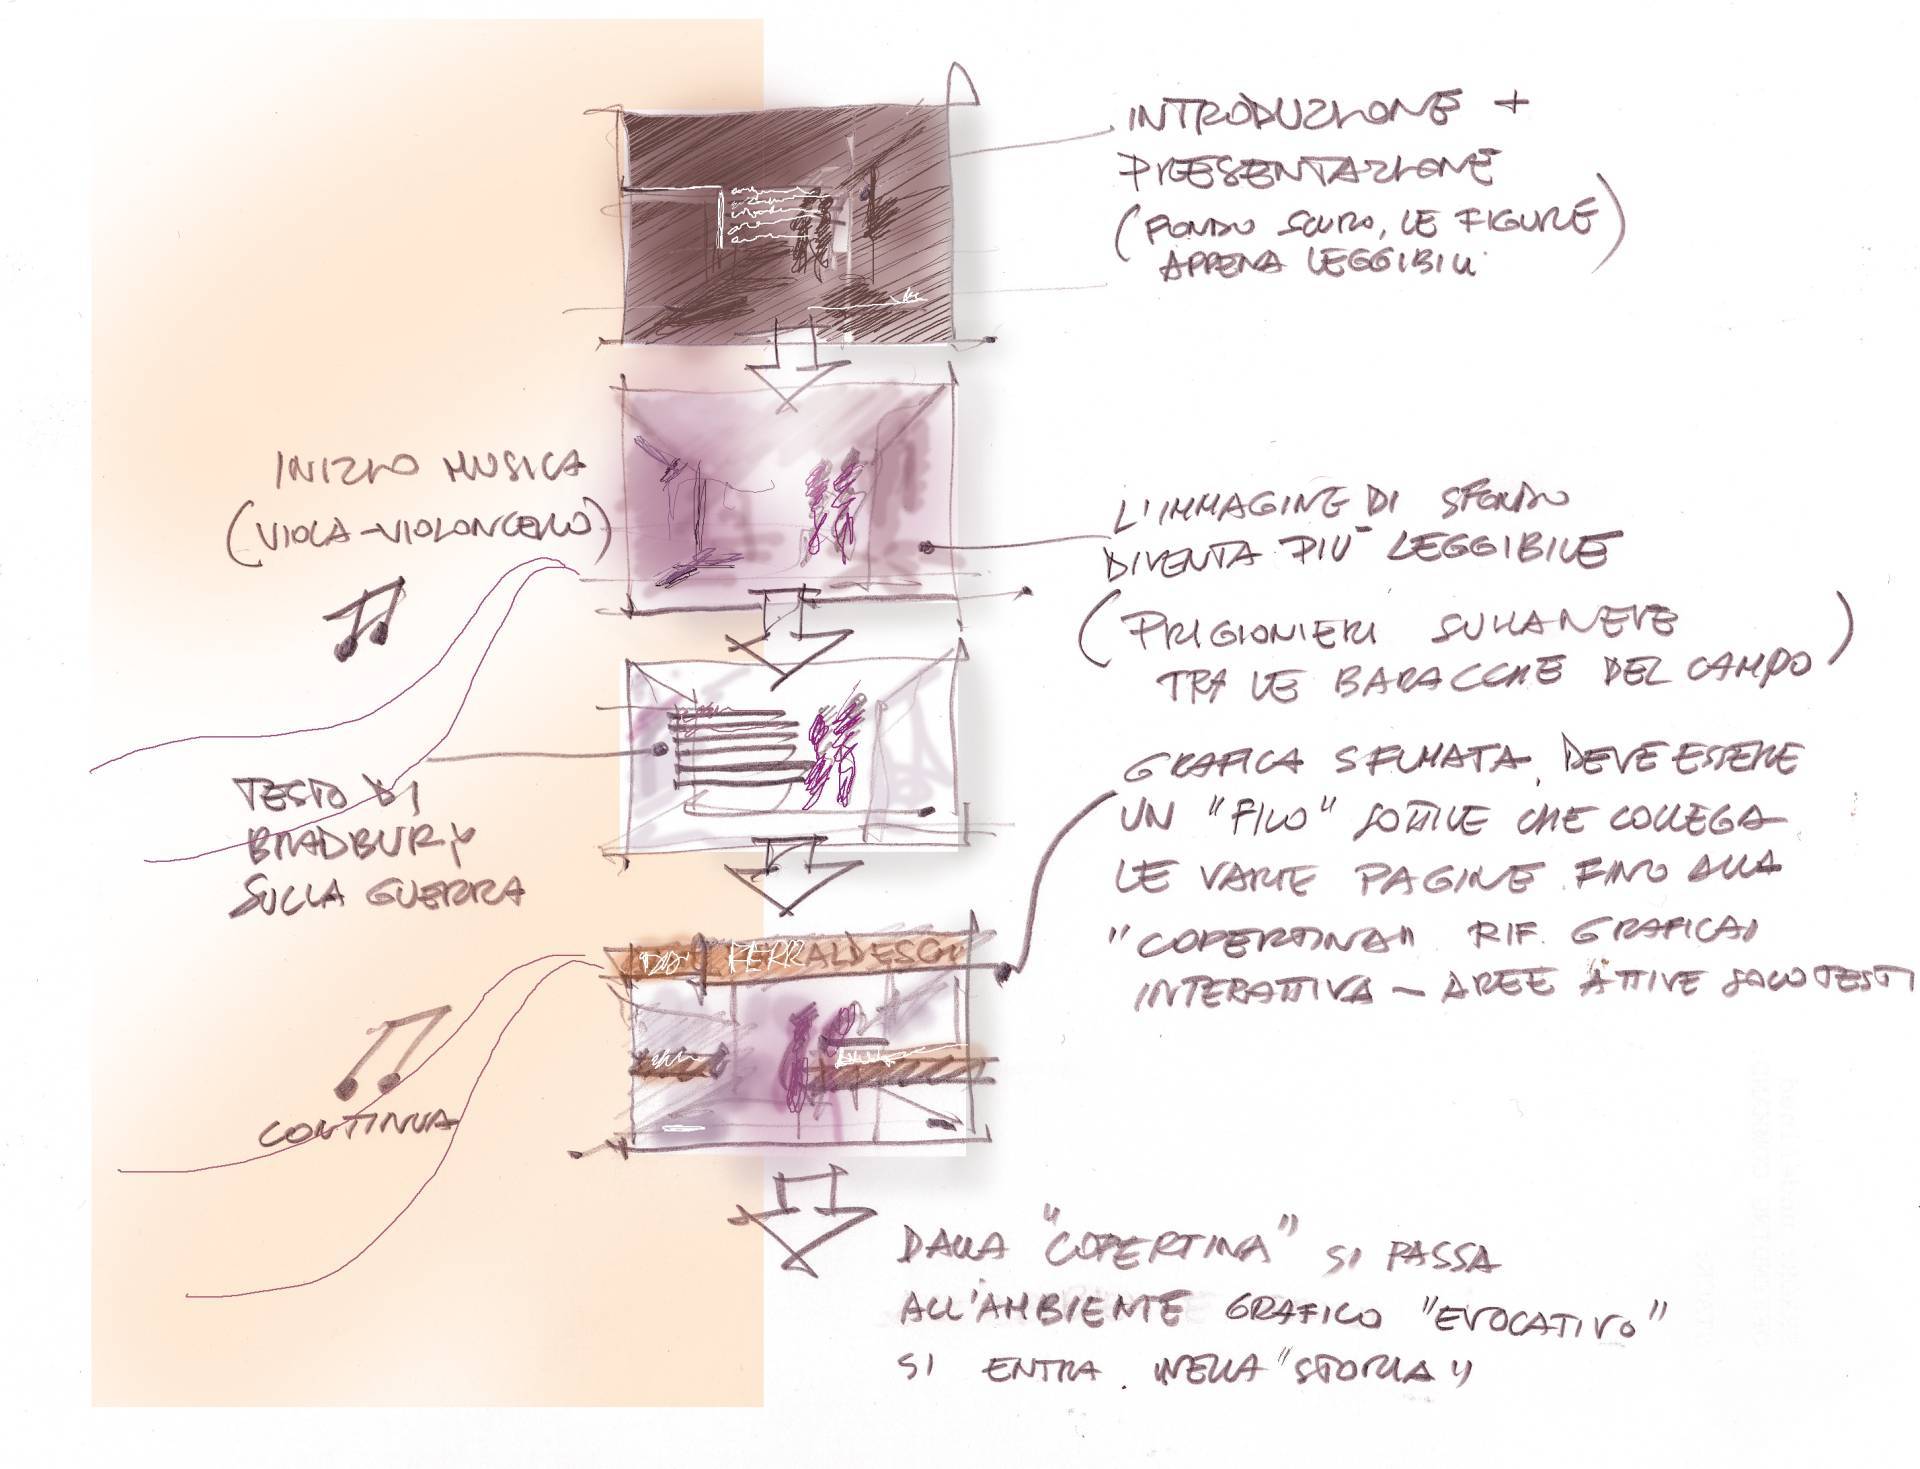 INTRODUZIONE +
PRESENTAZIONE
(FONDO SCURO, LE FIGURE
APPENA LEGGIBILI)
INIZIO MUSICA
(VIOLA-VIOLONCELLO)
L'IMMAGINE DI SFONDO
DIVENTA PIU' LEGGIBILE
(PRIGIONIERI SULLA NEVE
TRA LE BARACCHE DEL CAMPO)
TESTO DI
BRADBURY
SULLA GUERRA
GRAFICA SFUMATA, DEVE ESSERE
UN "FILO" SOTTILE CHE COLLEGA
LE VARIE PAGINE FINO ALLA
"COPERTINA" RIF. GRAFICA
INTERATTIVA - AREE ATTIVE SOLO TESTI
CONTINUA
DALLA "COPERTINA" SI PASSA
ALL'AMBIENTE GRAFICO "EVOCATIVO"
SI ENTRA NELLA "STORIA"